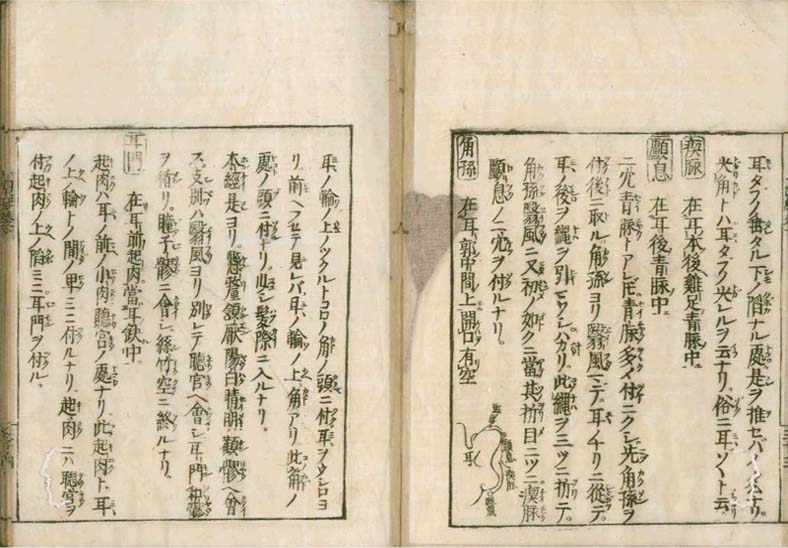 耳タブノ垂タル下ノ陷ナル處是ヲ推セバ
尖角トハ耳タブノ尖レルヲ云ナリ。俗ニ耳ゾヽト云
瘈脉 在耳本後雞足青脉中
顱息 在耳後青脉中
二穴青脉トアレ𪜈青脉多ク付ニクシ先角孫ヲ
付後ニ取ル角孫ヨリ翳風マデ耳ノチリニ從テ
耳ノ後ヲ縄ヲ引マワシハカリ。此縄ヲ三ツニ折テ。
角孫翳風ニ又初メ如クニ當其折目二ツニ瘈脉
顱息ノ二穴ヲ付ルナリ。
角孫 在耳郭中間上開口有空
角孫
顱息
瘈脉
翳風
耳
耳ノ輪ノ上ノツクルトコロノ角ノ頭ニ付耳ヲウシロヨ
リ前ヘフセテ見レバ耳ノ輪ノ上ニ角アリ此角ノ
處ノ頭ニ付ナリ。少シ髪際ニ入ルナリ。
本經是ヨリ。懸釐頷厭陽白睛明顴髎ヘ會
ス。支別ハ翳風ヨリ別レテ聽宮ヘ會シ耳門和髎
ヲ循リ。瞳子髎ニ會シ絲竹空ニ終ルナリ。
耳門 在耳前起肉當耳缺中
起肉ハ耳ノ前ノ小肉聽宮ノ處ナリ此起肉ト耳
ノ上ノ輪トノ間ノ
ミニ付ルナリ。起肉ニハ聽宮ヲ
付起肉ノ上ノ陷ミニ耳門ヲ付ル